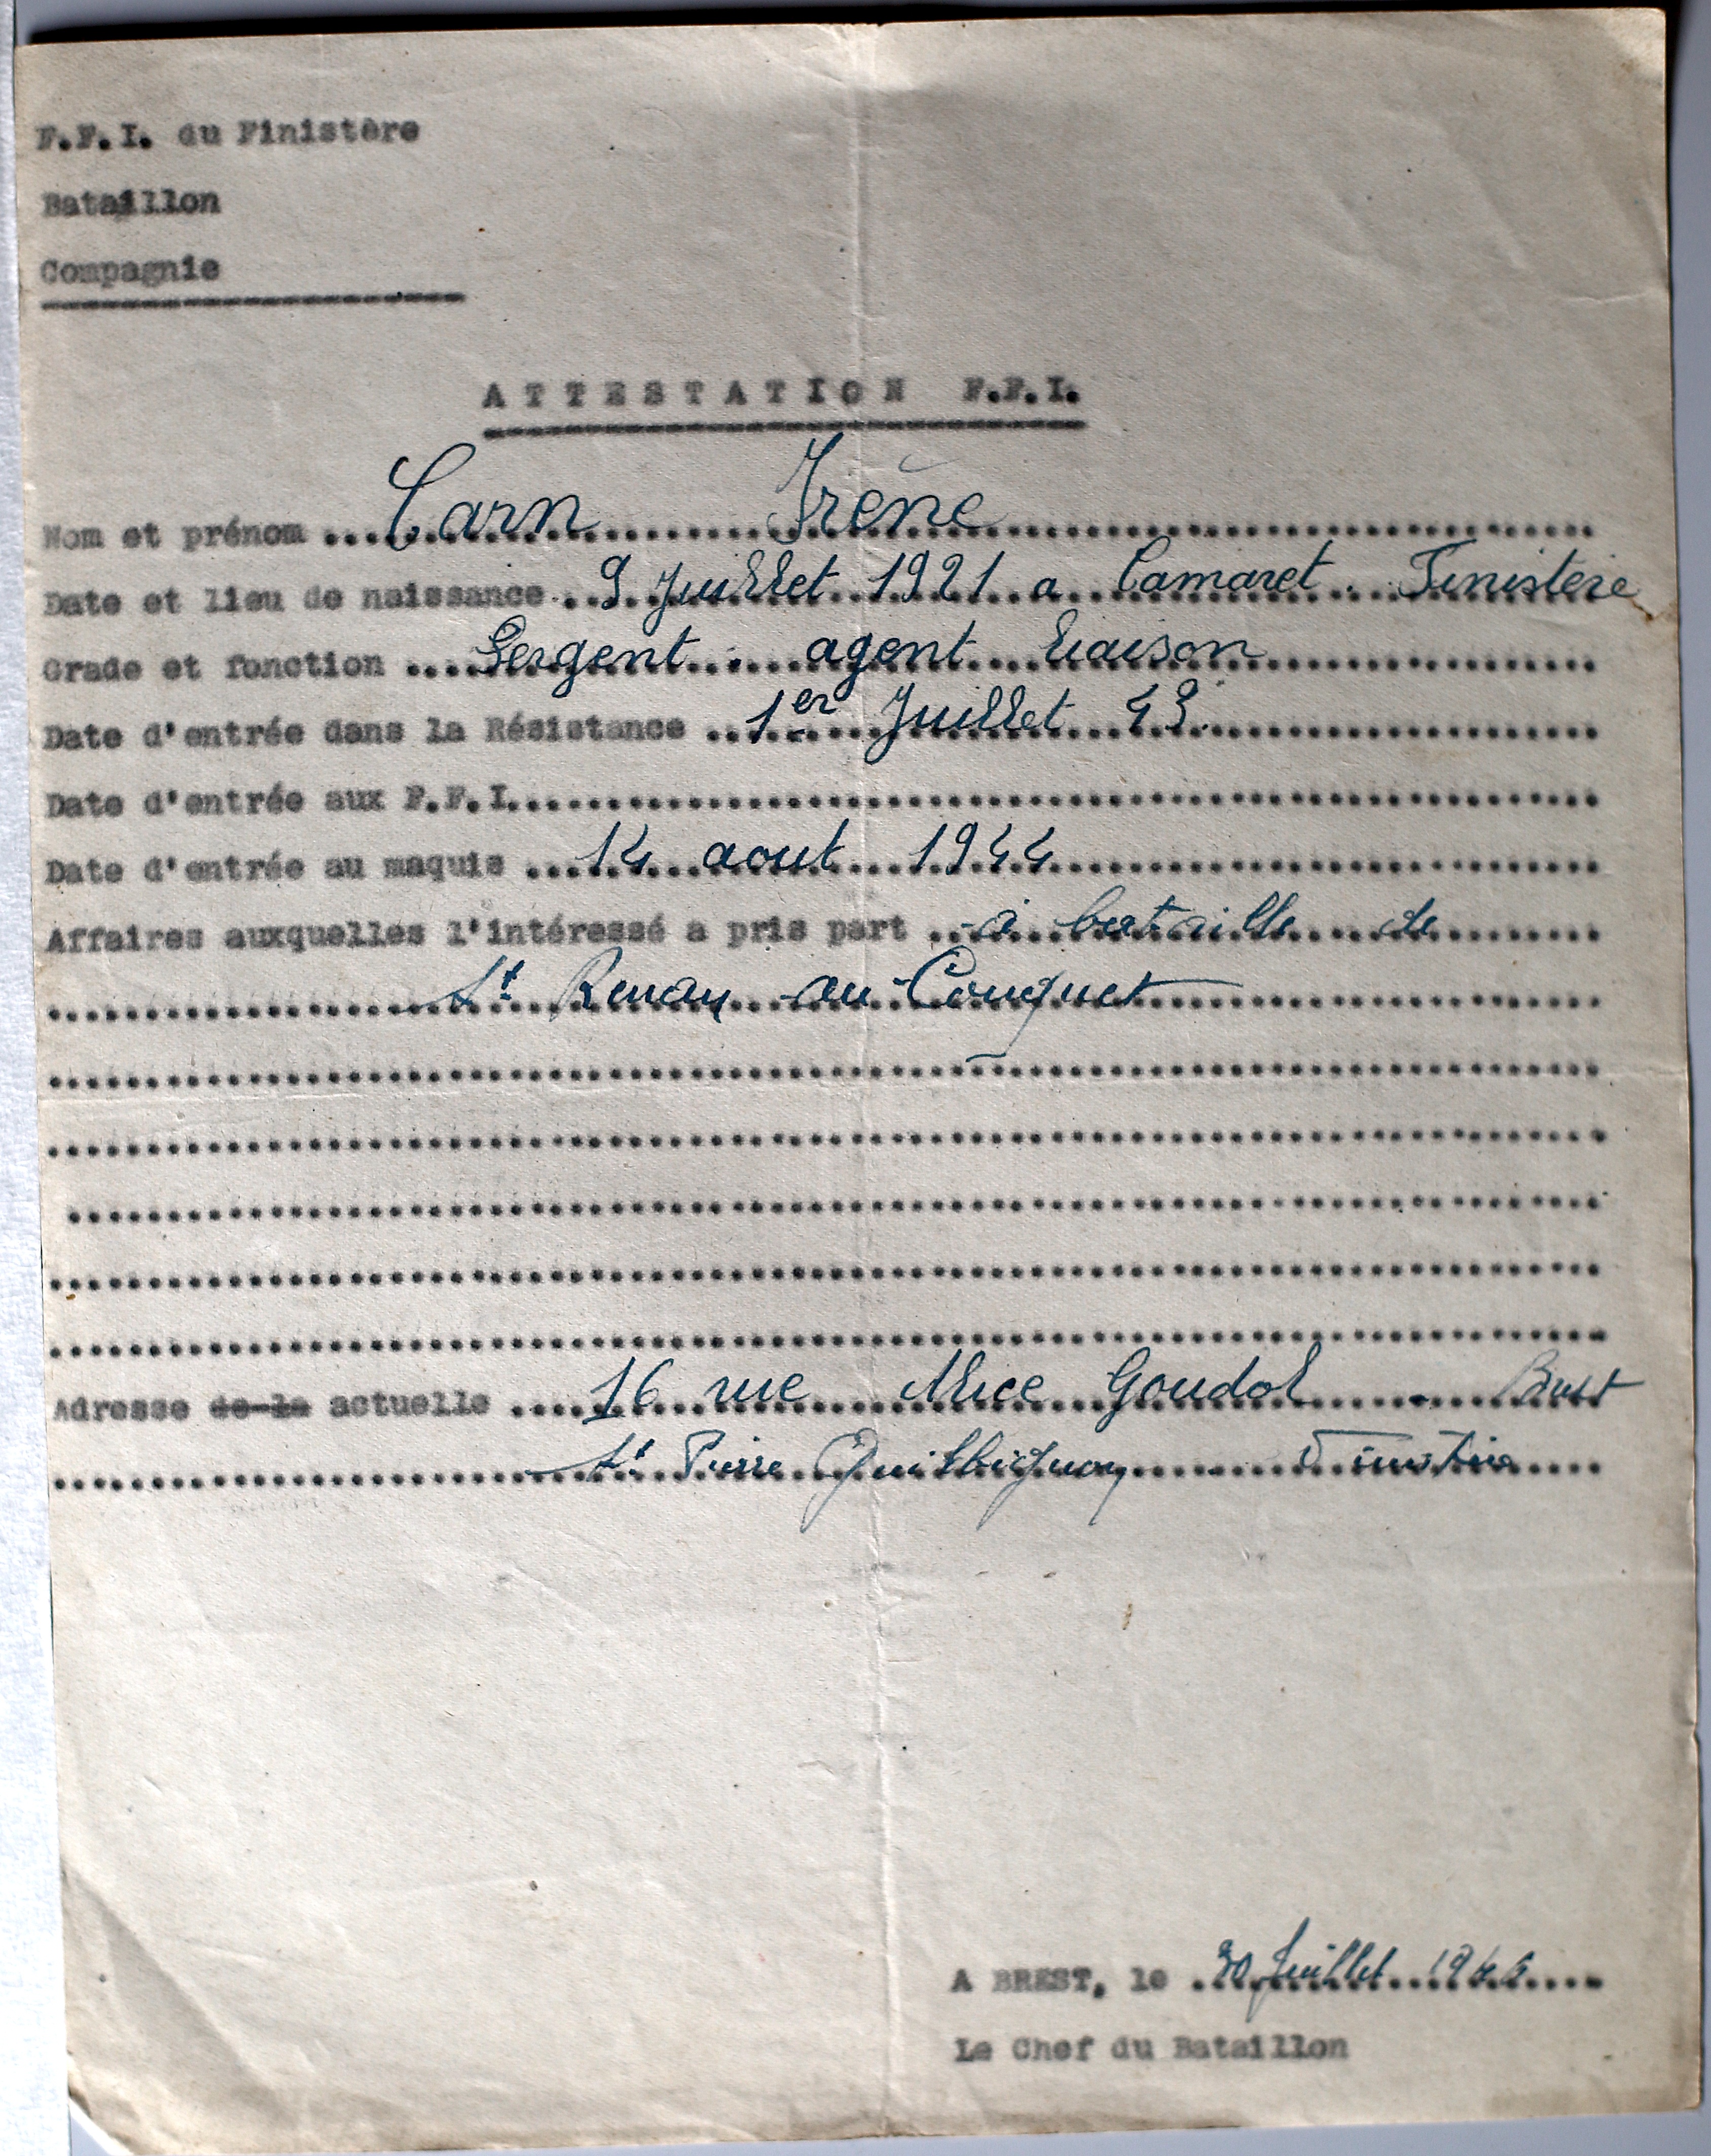 F.F.I. du Finistère
Bataillon
Compagnie
ATTESTATION F.F.I.
Nom et prénom ... Carn Irène
Date et lieu de naissance .. 9 Juillet 1921 a Camaret. Finistère
Grade et fonction .... Sergent agent liaison
Date d'entrée dans la Résistance .. 1er Juillet 43
Date d'entrée aux F.F.I.
Date d'entrée au maquis ... 14 aout 1944
Affaires auxquelles l'intéressé a pris part .. à bataille de
St Renan au Conquet
Adresse de la actuelle .... 16 rue Goudol Brest
St Pierre Quilbignon Finistère
A BREST, le Juillet
Le Chef du Bataillon